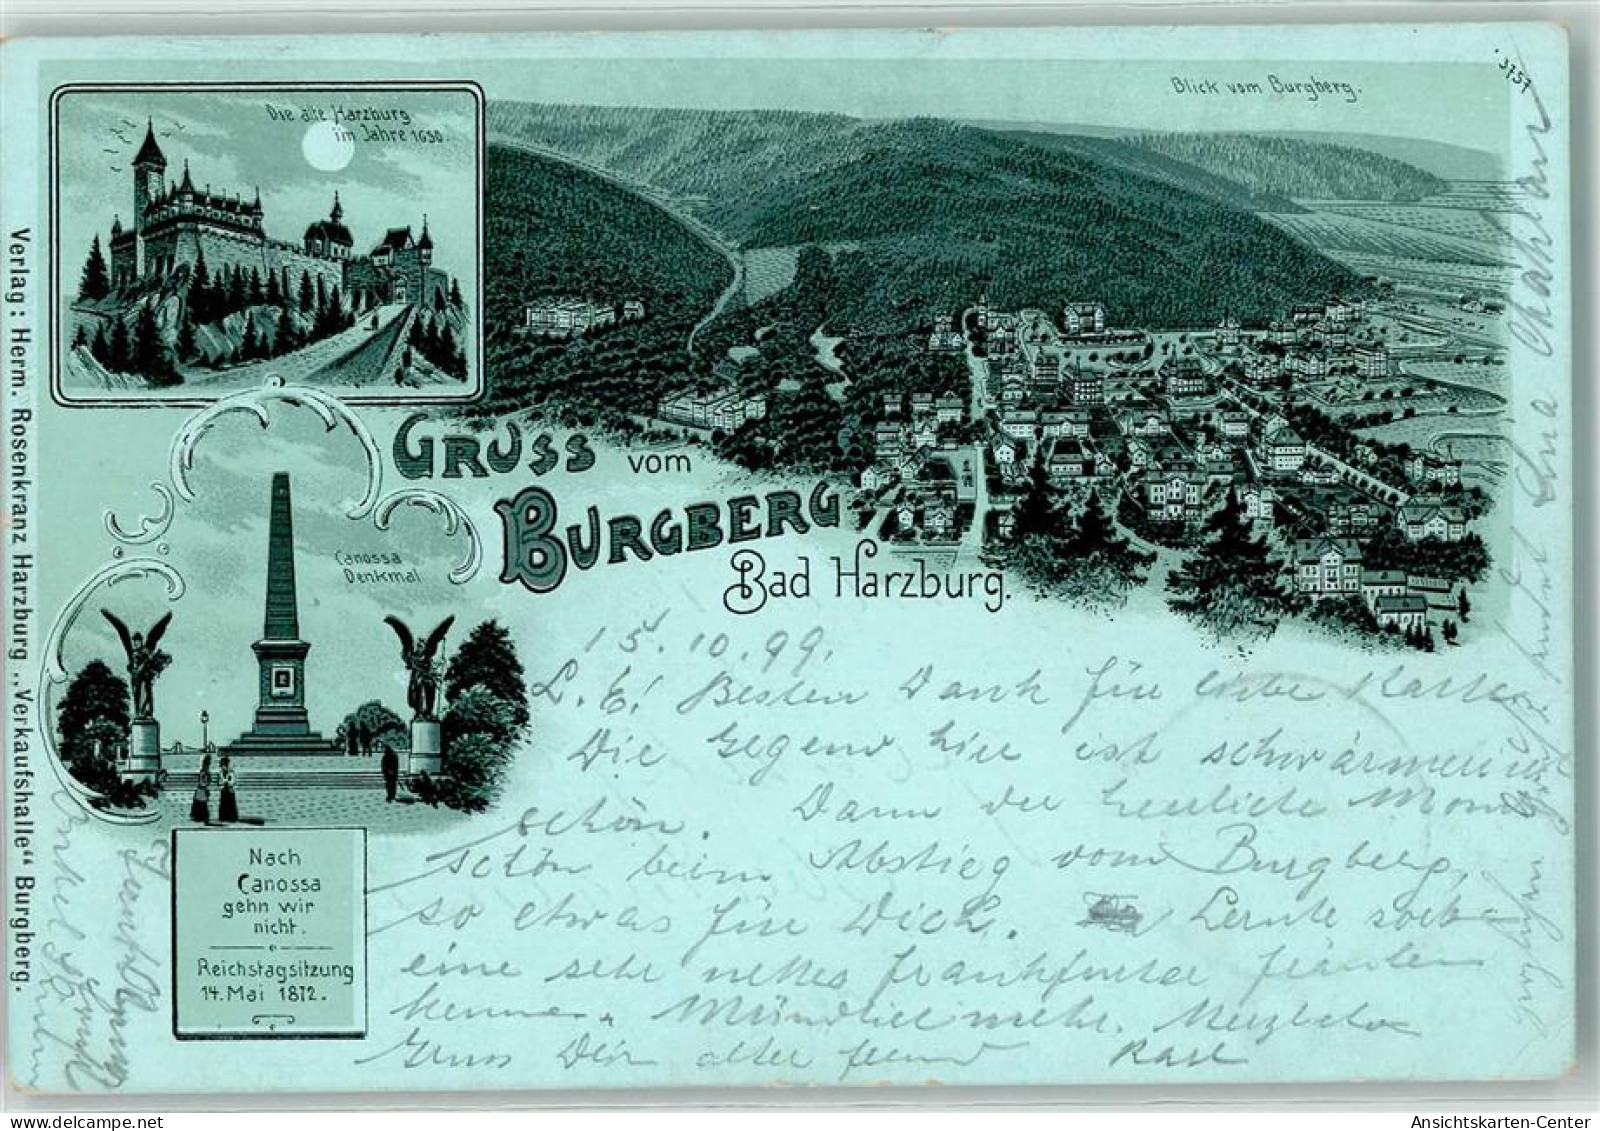 3757
Blick vom Burgberg.
Die alte Harzburg
im Jahre 1650.
GRUSS VOM
BURGBERG
Bad Harzburg.
Canossa
Denkmal
Nach
Canossa
gehn wir
nicht.
Reichstagsitzung
14. Mai 1872.
Verlag: Herm. Rosenkranz Harzburg „Verkaufshalle“ Burgberg.
15.10.99.
L. E! Besten Dank für liebe Karte
Die Gegend hier ist schwärmerisch
schön. Dann der herrliche Mond
schön beim Abstieg vom Burgberg,
so etwas für Dich. Lernte soeben
eine sehr nettes Frankfurter Fräulein
kennen. Mündlich mehr. Herzliche
Gruss Dein alter Freund Karl
Ansichtskarten-Center